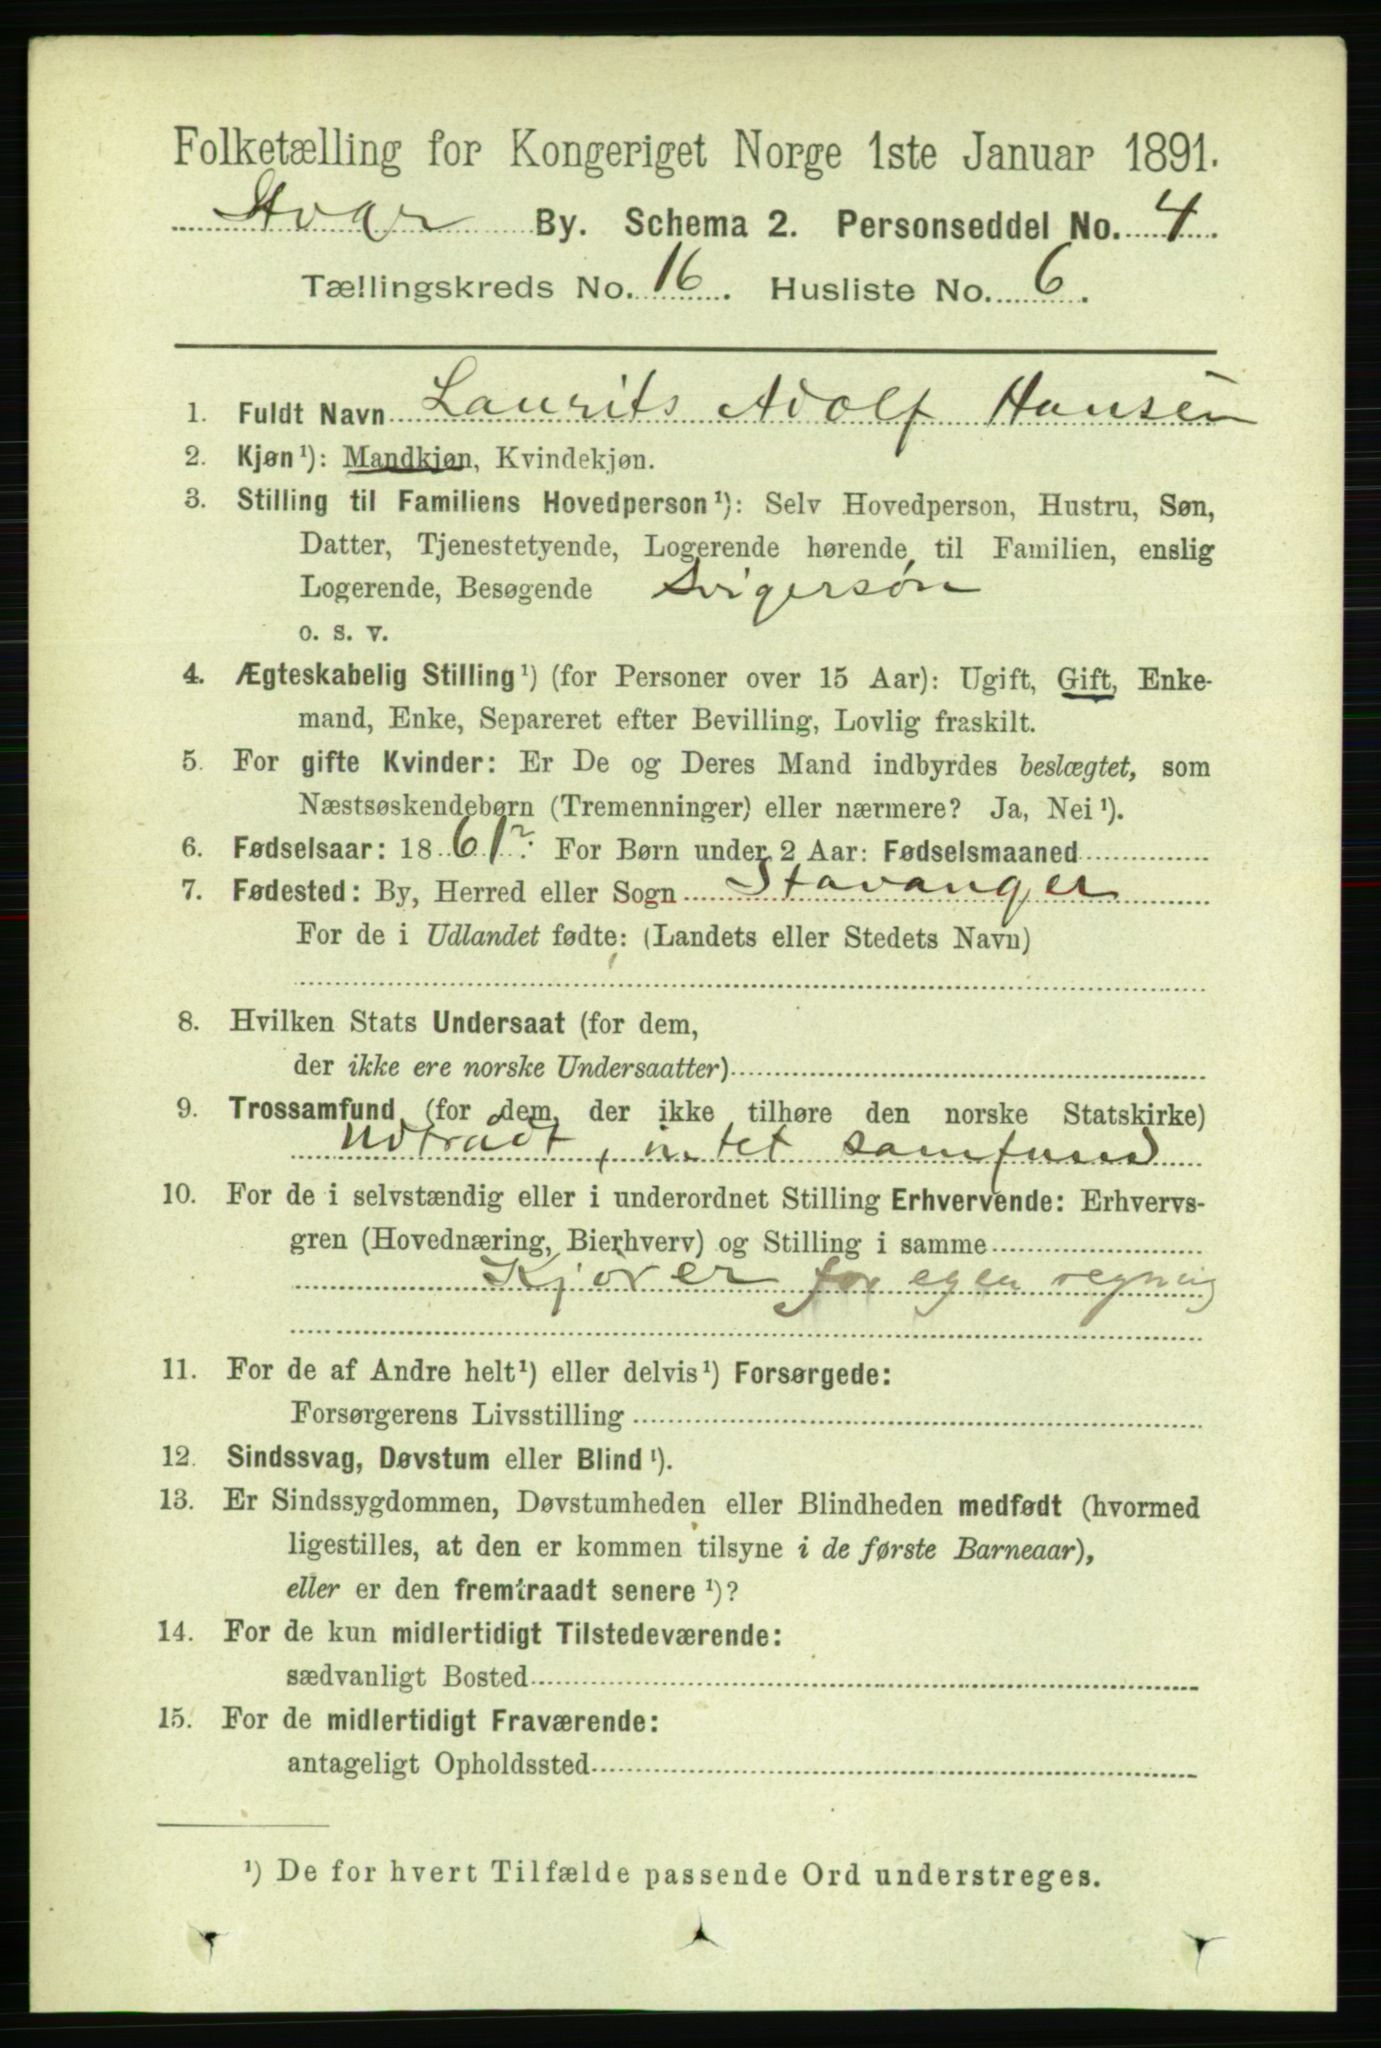 Folketælling for Kongeriget Norge 1ste Januar 1891.
Stvgr By. Schema 2. Personseddel No. 4.
Tællingskreds No. 16. Husliste No. 6.
1. Fuldt Navn Laurits Adolf Hansen
2. Kjøn¹): Mandkjøn, Kvindekjøn.
3. Stilling til Familiens Hovedperson¹): Selv Hovedperson, Hustru, Søn,
Datter, Tjenestetyende, Logerende hørende til Familien, enslig
Logerende, Besøgende Svigersøn
o. s. v.
4. Ægteskabelig Stilling¹) (for Personer over 15 Aar): Ugift, Gift, Enke-
mand, Enke, Separeret efter Bevilling, Lovlig fraskilt.
5. For gifte Kvinder: Er De og Deres Mand indbyrdes beslægtet, som
Næstsøskendebørn (Tremenninger) eller nærmere? Ja, Nei¹).
6. Fødselsaar: 1861? For Børn under 2 Aar: Fødselsmaaned
7. Fødested: By, Herred eller Sogn Stavanger
For de i Udlandet fødte: (Landets eller Stedets Navn)
8. Hvilken Stats Undersaat (for dem,
der ikke ere norske Undersaatter)
9. Trossamfund (for dem, der ikke tilhøre den norske Statskirke)
Udtraadt, intet samfund
10. For de i selvstændig eller i underordnet Stilling Erhvervende: Erhvervs-
gren (Hovednæring, Bierhverv) og Stilling i samme
Kjører for egen regning
11. For de af Andre helt¹) eller delvis¹) Forsørgede:
Forsørgerens Livsstilling
12. Sindssvag, Døvstum eller Blind¹).
13. Er Sindssygdommen, Døvstumheden eller Blindheden medfødt (hvormed
ligestilles, at den er kommen tilsyne i de første Barneaar),
eller er den fremtraadt senere¹)?
14. For de kun midlertidigt Tilstedeværende:
sædvanligt Bosted
15. For de midlertidigt Fraværende:
antageligt Opholdssted
¹) De for hvert Tilfælde passende Ord understreges.